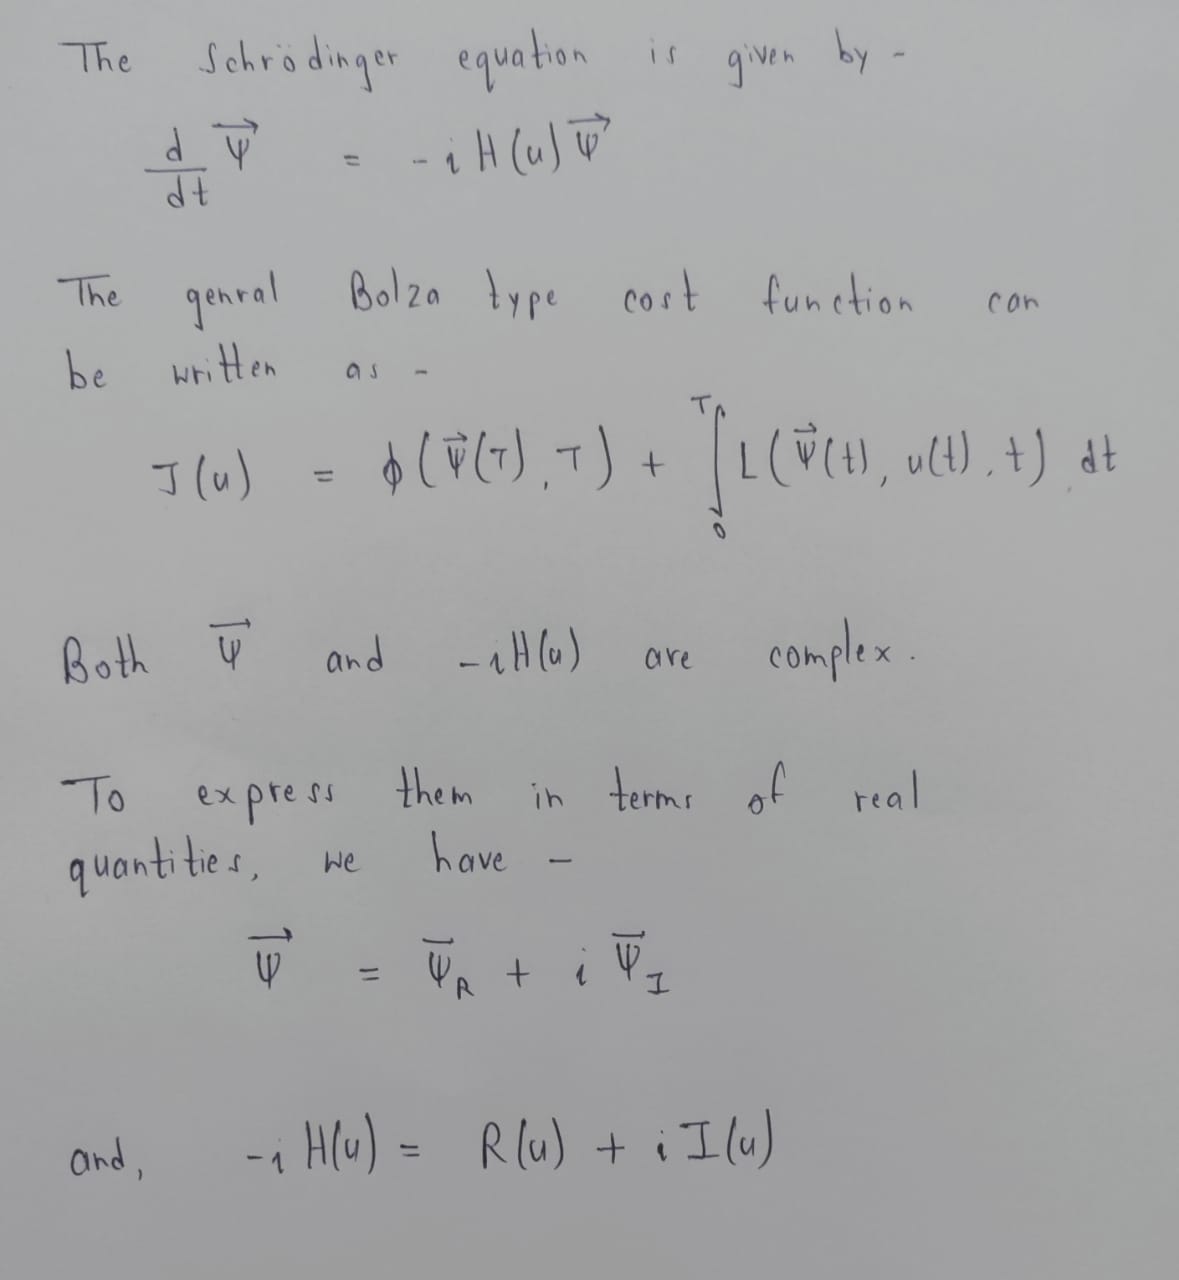 The Schrödinger equation is given by -
d/dt ψ⃗ = - i H(u) ψ⃗
The genral Bolza type cost function can
be written as -
J(u) = ϕ(ψ⃗(T), T) + ∫₀ᵀ L(ψ⃗(t), u(t), t) dt
Both ψ⃗ and -iH(u) are complex.
To express them in terms of real
quantities, we have -
ψ⃗ = ψ̅_R + i ψ̅_I
and, -i H(u) = R(u) + i I(u)